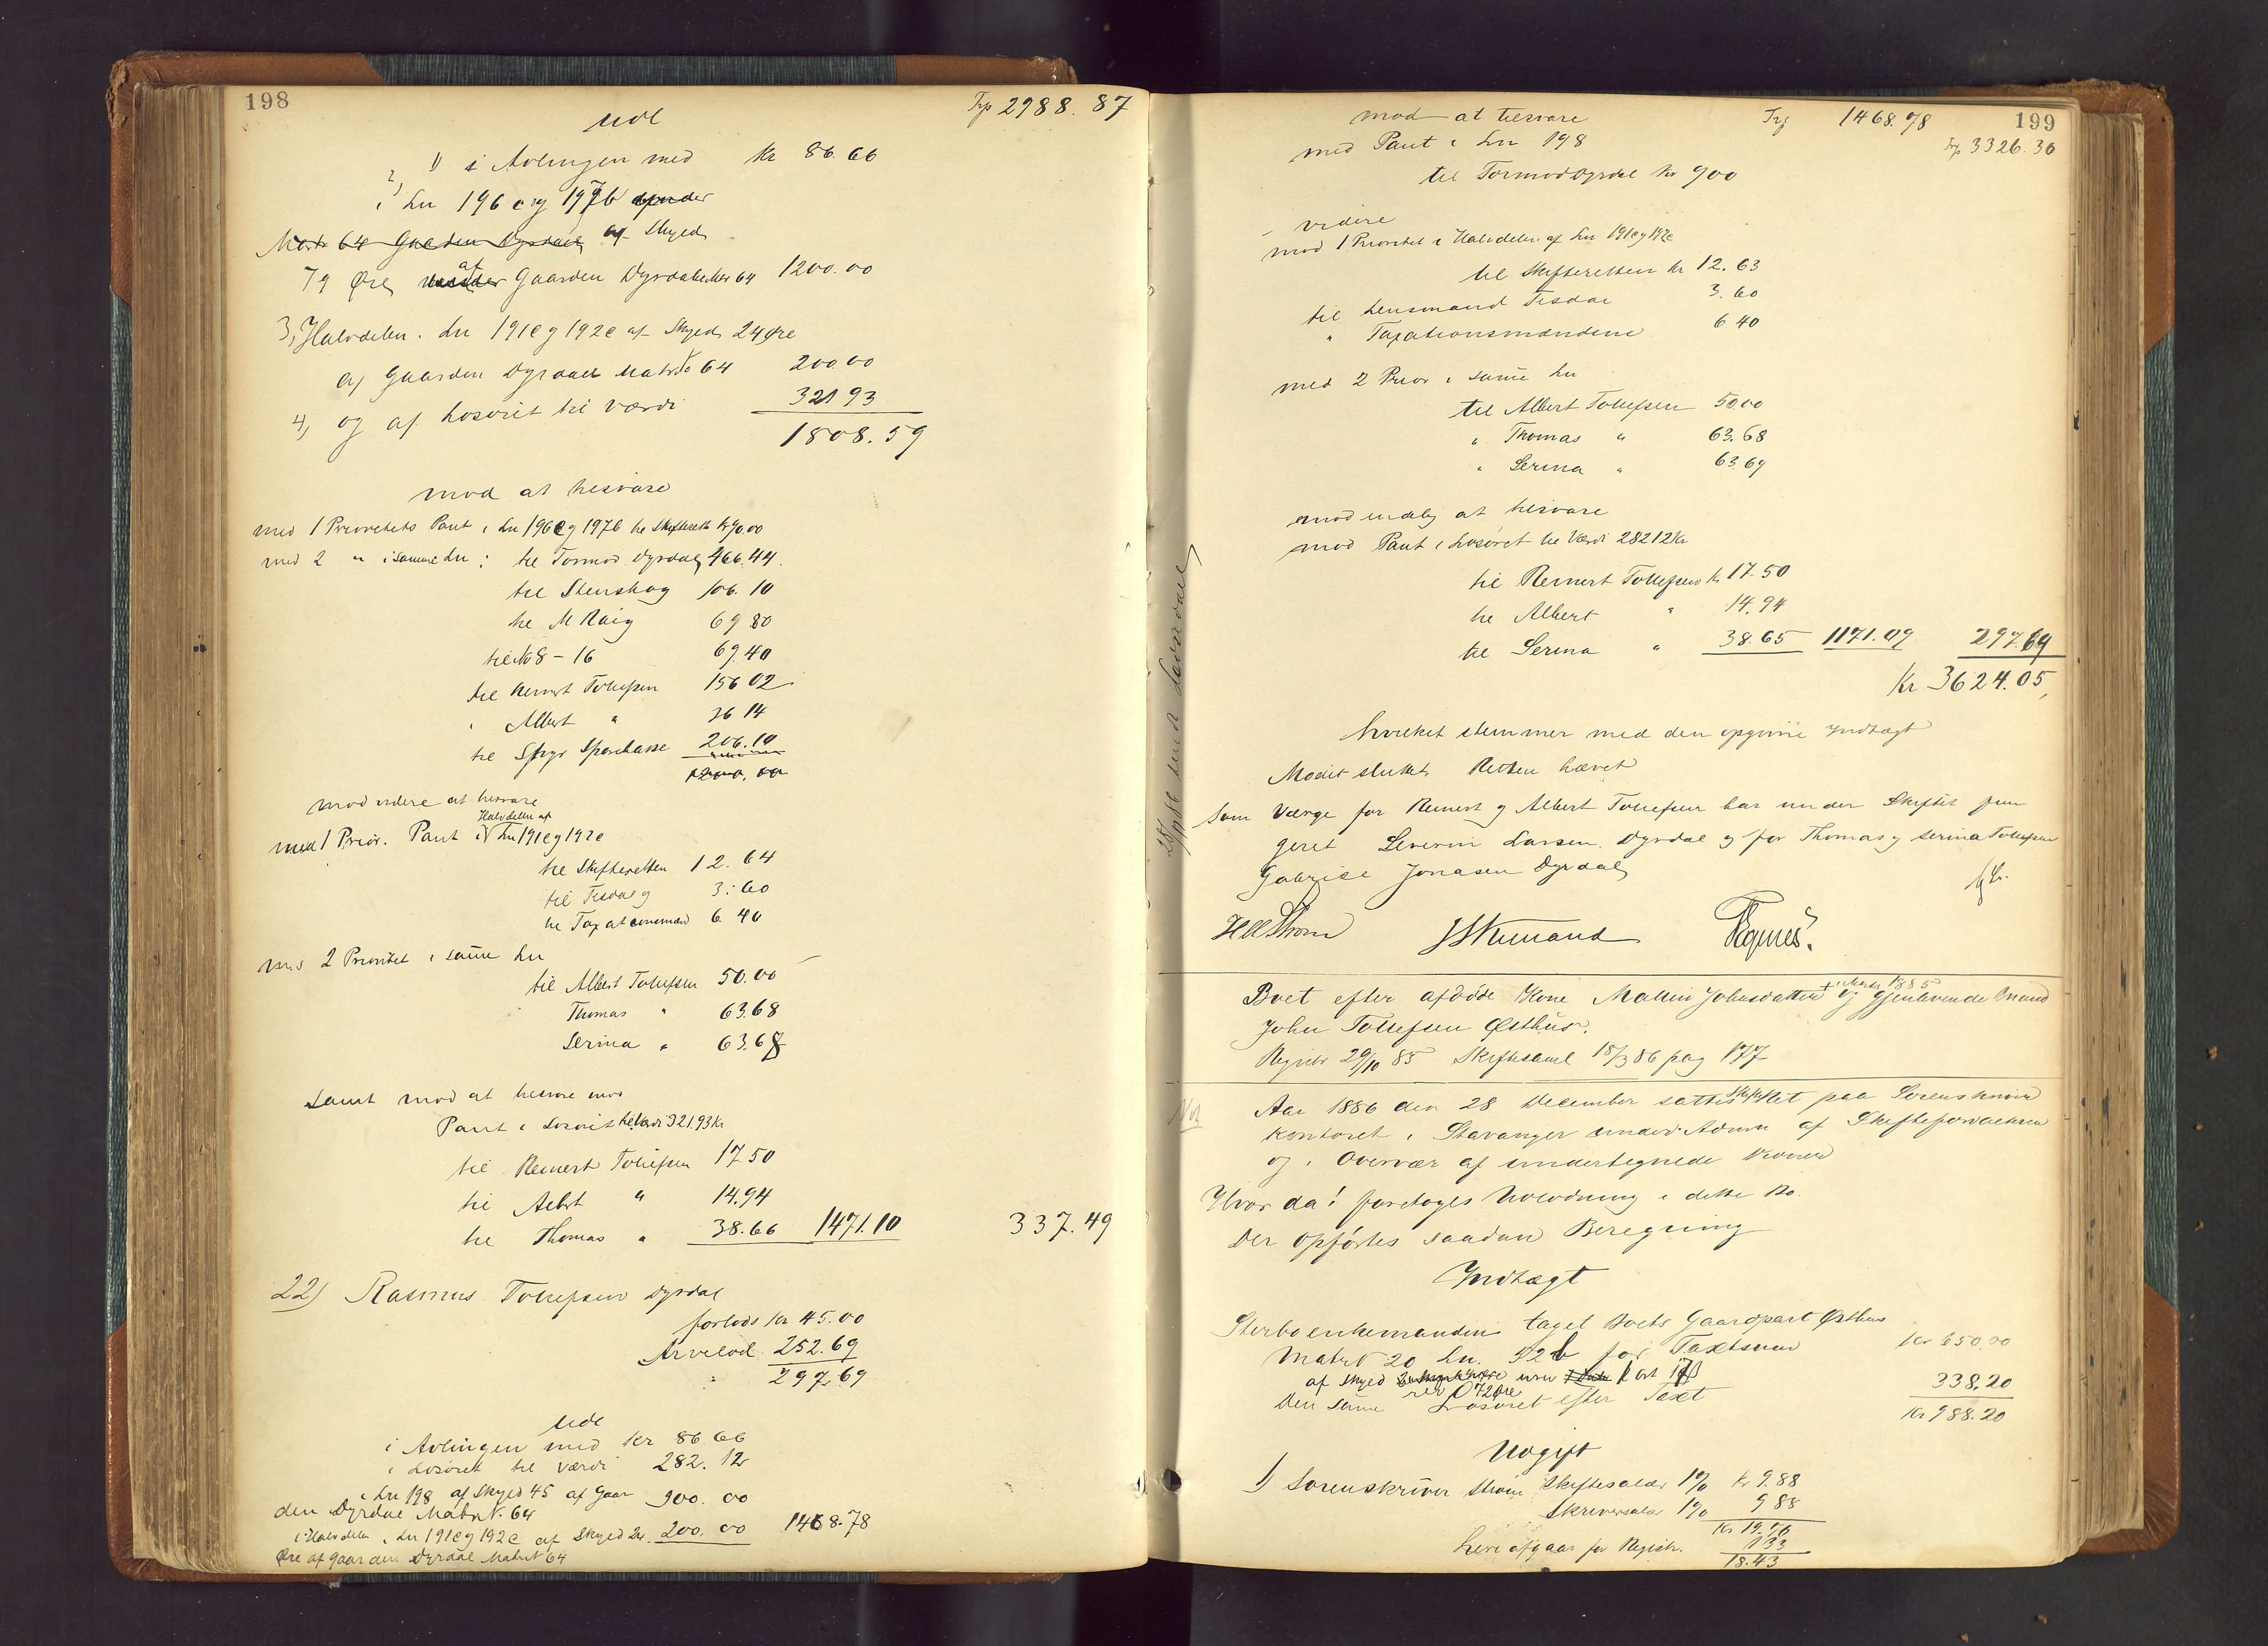 198
Trp 2988.87
Udl
1) i Avlingen med Kr 86.66
2) i Lnr 196 c og 197 b under
Matr 64 Gaarden Dyrdal af Skyld
79 Øre under af Gaarden Dyrdal Matr 64 1200.00
3, Halvdelen i Lnr 191 c og 192 c af Skyld 24 Øre
af Gaarden Dyrdal Matr No 64 200.00
4, og af Løsøret til Værdi 321 93
1808.59
mod at tilsvare
med 1 Prioritets Pant i Lnr 196 c og 197 b til Skifteretten Kr 90.00
med 2 " i samme Lnr: til Tormod Dyrdal 466.44
til Stenskog 106.10
til M Räig 69 80
til No 8-16 69.40
til Reinert Tollefsen 156 02
" Albert " 36 14
til Sparekasse 206.10
1200.00
mod videre at tilsvare
med 1 Prior. Pant i Halvdelen af Lnr 191 c og 192 c
til Skifteretten 12.64
til Tisdal 3.60
til Taxationsmænd 6.40
med 2 Prioritet i samme Lnr
til Albert Tollefsen 50.00
Thomas " 63.68
Serina " 63.68
samt mod at tilsvare mod
Pant i Løsøret til Værdi 321.93 Kr
til Reinert Tollefsen 17.50
til Albert " 14.94
til Thomas " 38.66 1471.10 337.49
22) Rasmus Tollefsen Dyrdal
forlods Kr 45.00
Arvelod 252.69
297.69
Udl
i Avlingen med Kr 86.66
i Løsøret til Værdi 282.12
i Lnr 198 af Skyld 45 af Gaar
den Dyrdal Matr N. 64 900.00
i Halvdelen i Lnr 191 c og 192 c af Skyld 24 200.00 1468.78
Øre af Gaarden Dyrdal Matr 64
199
mod at tilsvare Trf 1468.78
Trp 3326.36
med Pant i Lnr 198
til Tormod Dyrdal Kr 900
videre
mod 1 Prioritet i Halvdelen af Lnr 191 c og 192 c
til Skifteretten Kr 12.63
til Lensmand Tisdal 3.60
" Taxationsmændene 6 40
med 2 Prior i samme Lnr
til Albert Tollefsen 50.00
" Thomas " 63.68
" Serina " 63.69
mod endelig at tilsvare
mod Pant i Løsøret til Værdi 282 12 Kr
til Reinert Tollefsen Kr 17.50
til Albert " 14.94
til Serina " 38.65 1171.09 297.69
Kr 3624.05,
hvilket stemmer med den opgivne Indtægt
Modet sluttet Retten hævet
Som Værge for Reinert og Albert Tollefsen har under Skiftet fun
geret Severin Larsen Dyrdal og for Thomas og Serina Tollefsen
Gabriel Jonasen Dyrdal
Boet efter afdøde Kone Malene Johnsdatter + i Marts 1885 og gjenlevende Mand
John Tollefsen Østhus.
Registr 29/10 85 Skiftesaml 18/3 86 pag 177
Aar 1886 den 28 December sattes Skifteret paa Sorenskriver
kontoret i Stavanger under Adm af Skifteforvalteren
og i Overvær af undertegnede Vidner
Hvor da! foretoges Udlodning i dette Bo
Der opførtes saadan Beregning
Indtægt
Sterboenkemanden taget Boets Gaardpart Østhus
Matr N 20 Lnr. 52 b for Taxtsum Kr 650.00
af Skyld
Den samme Løsøret efter Taxt 338.20
Kr 988.20
Udgift
1) Sorenskriver Strøm Skiftesalær 1% Kr 9.88
Skriversalær 1% 9 88
Kr 19.76
heri afgaar for Registr. 1 33
18.43